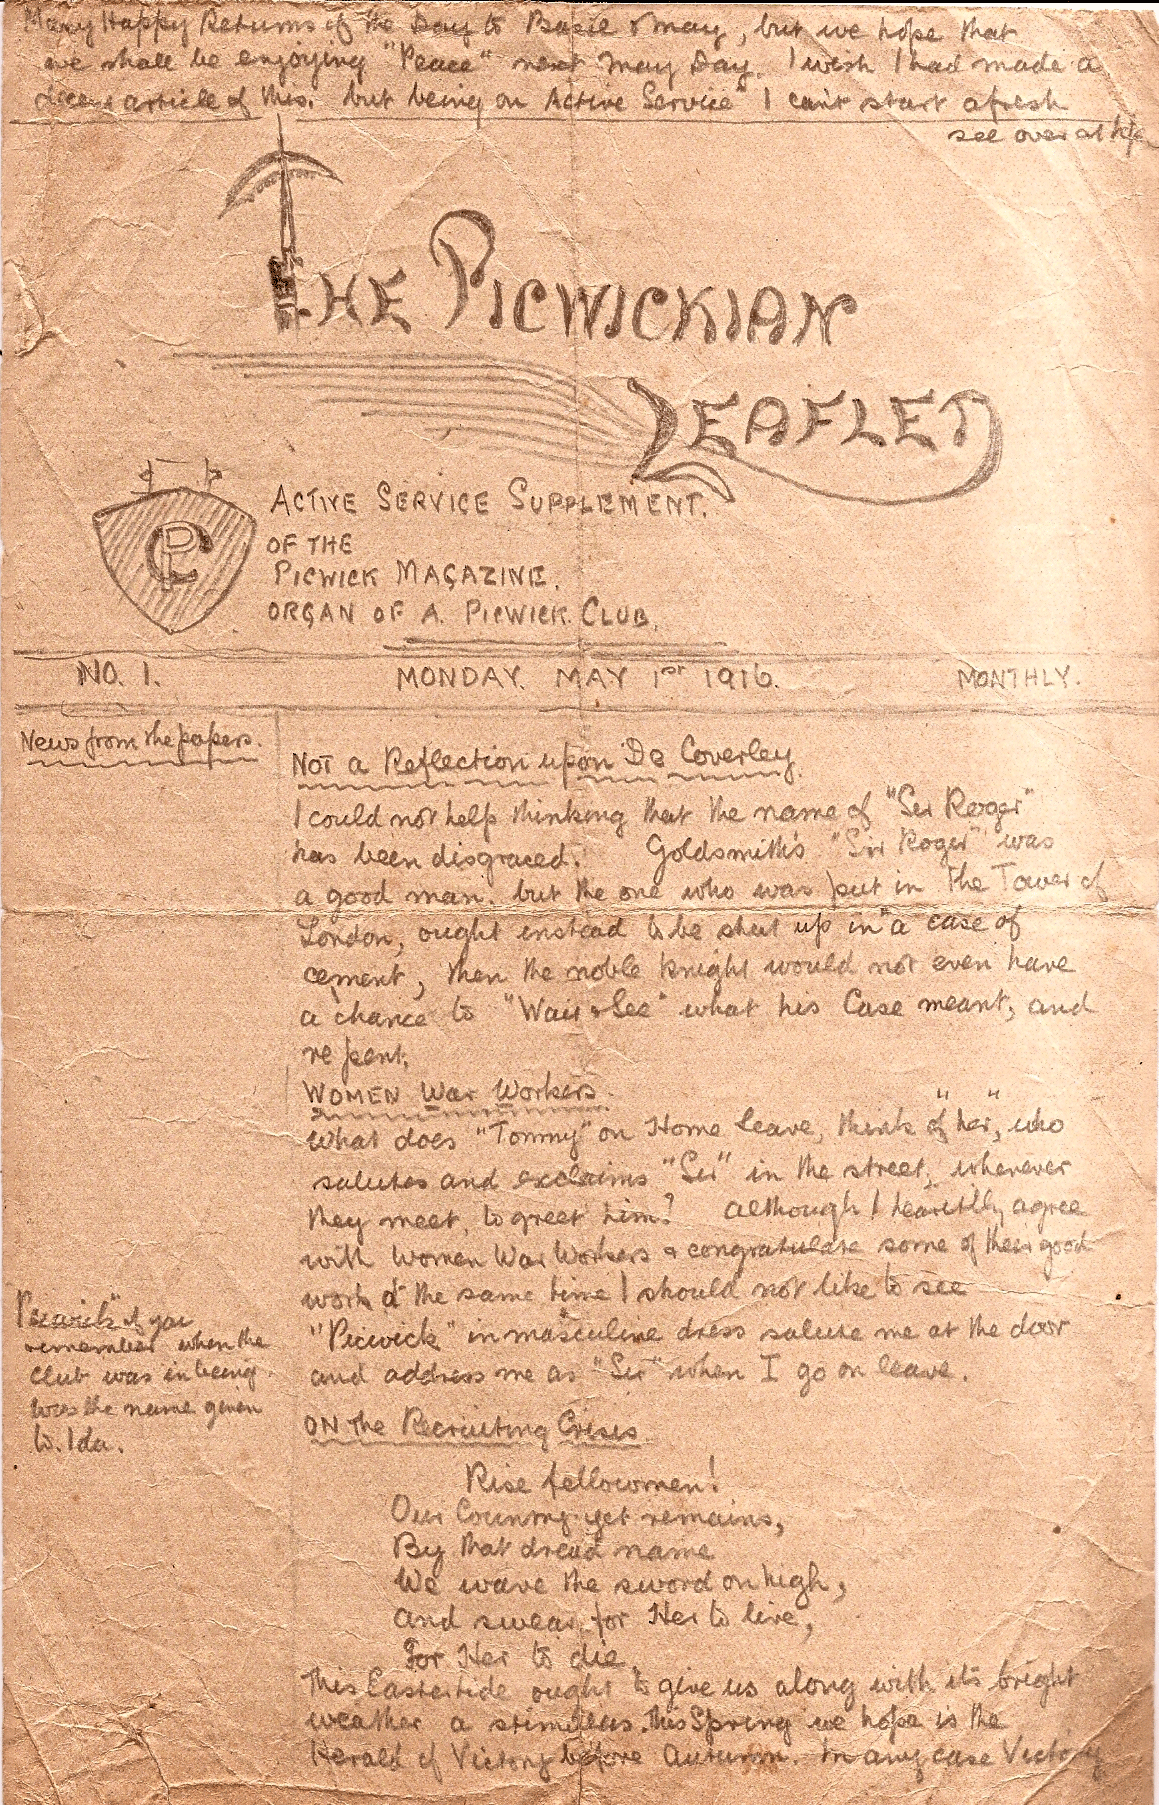 Many Happy Returns of the Day to Basil & May, but we hope that
we shall be enjoying "Peace" next May Day. I wish I had made a
article of this. but being on Active Service" I can't start afresh
see over at top
THE PICWICKIAN
LEAFLET
CP
ACTIVE SERVICE SUPPLEMENT.
OF THE
PICWICK MAGAZINE.
ORGAN OF A. PICWICK CLUB.
NO. 1. MONDAY. MAY 1ST 1916. MONTHLY.
News from the papers.
NOT a Reflection upon De Coverley.
I could not help thinking that the name of "Sir Roger"
has been disgraced. Goldsmith's "Sir Roger" was
a good man. but the one who was put in the Tower of
London, ought instead to be shut up in "a case of
cement, then the noble knight would not even have
a chance to "Wait & See" what his Case meant, and
repent.
WOMEN War Workers.
What does "Tommy" on Home leave, think of "her", who
salutes and exclaims "Sir" in the street, whenever
they meet, to greet him? Although I heartily agree
with Women War Workers & congratulate some of their good
work at the same time I should not like to see
"Picwick" in masculine dress salute me at the door
and address me as "Sir" when I go on leave.
Picwick" if you
remember when the
club was in being.
was the name given
to. Ida.
ON the Recruiting Crisis.
Rise fellowmen!
Our Country yet remains,
By that dread name
We wave the sword on high,
and swear for Her to live,
For Her to die.
This Eastertide ought to give us along with its bright
weather a stimulus. this Spring we hope is the
Herald of Victory before Autumn. In any case Victory